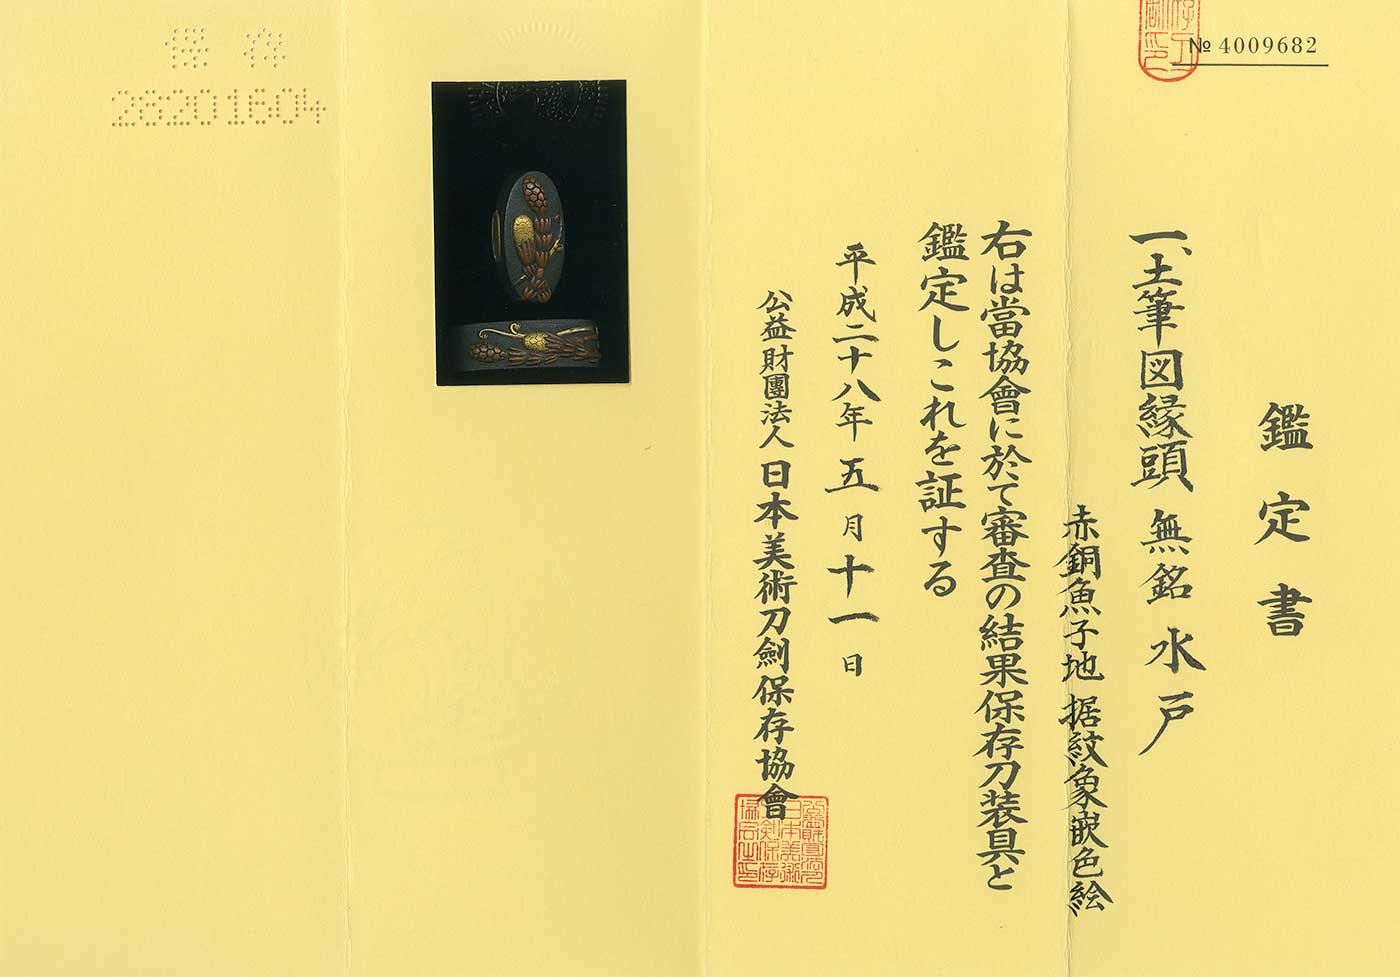 № 4009682
鑑定書
一、土筆図縁頭 無銘 水戸
赤銅魚子地 据紋象嵌色絵
右は當協會に於て審査の結果保存刀装具と
鑑定しこれを証する
平成二十八年五月十一日
公益財團法人 日本美術刀劍保存協會
保存
28201604